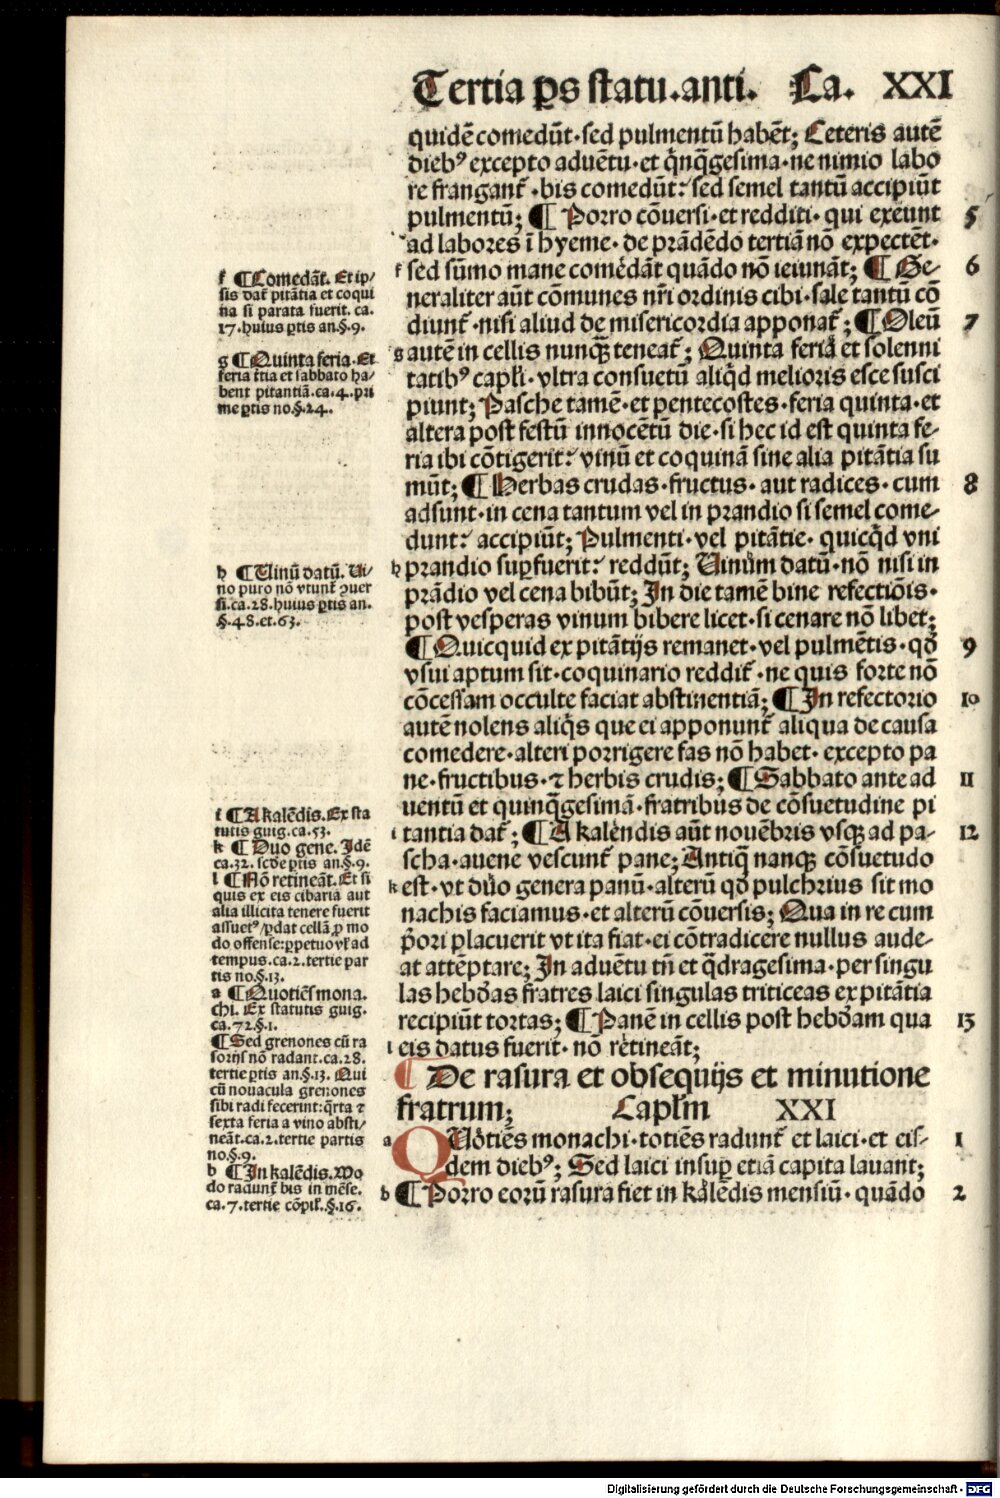 Tertia ꝑs statu.anti. Ca. XXI
quidē comedūt·sed pulmentū habēt; Ceteris autē
dieb⁹ excepto aduētu·et q̄nq̄gesima·ne nimio labo
re frangant᷑·bis comedūt: sed semel tantū accipiūt
pulmentū; ¶ Porro cōuersi·et redditi·qui exeunt 5
ad labores ī hyeme·de prādēdo tertiā nō expectēt·
f sed sūmo mane comēdant quādo nō ieiunāt; ¶ Ge- 6
neraliter aūt cōmunes nr̄i ordinis cibi·sale tantū cō
diunt᷑·nisi aliud de misericordia apponat᷑; ¶ Oleū 7
g autē in cellis nunqȝ teneat᷑; Quinta feria et solenni
tatib⁹ capl̄i·vltra consuetū aliq̄d melioris esce susci
piunt; Pasche tamē·et pentecostes·feria quinta·et
altera post festū innocētū die·si hec id est quinta fe-
ria ibi cōtigerit: vinū et coquinā sine alia pitātia su
mūt; ¶ Herbas crudas·fructus·aut radices·cum 8
adsunt·in cena tantum vel in prandio si semel come-
dunt: accipiūt; Pulmenti·vel pitātie·quicq̄d vni
h prandio suꝑfuerit: reddūt; Uinum datū·nō nisi in
prādio vel cena bibūt; In die tamē bine refectiōis·
post vesperas vinum bibere licet·si cenare nō libet;
¶ Quicquid ex pitātijs remanet·vel pulmētis·qd̄ 9
vsui aptum sit·coquinario reddit᷑·ne quis forte nō
cōcessam occulte faciat abstinentiā; ¶ In refectorio 10
autē nolens aliq̄s que ei apponunt᷑ aliqua de causa
comedere·alteri porrigere fas nō habet·excepto pa
ne·fructibus·⁊ herbis crudis; ¶ Sabbato ante ad 11
uentū et quinq̄gesimā·fratribus de cōsuetudine pi
i tantia dat᷑; ¶ A kalēndis aūt nouēbris vsqȝ ad pa- 12
scha·auene vescunt᷑ pane; Antiq̄ nanqȝ cōsuetudo
k est·vt duo genera panū·alterū qd̄ pulchrius sit mo
nachis faciamus·et alterū cōuersis; Qua in re cum
p̄ori placuerit vt ita fiat·ei cōtradicere nullus aude-
at attēptare; In aduētu tn̄ et q̄dragesima·per singu
las hebd̄as fratres laici singulas triticeas ex pitātia
recipiūt tortas; ¶ Panē in cellis post hebd̄am qua 13
l eis datus fuerit·nō retineāt;
¶ De rasura et obsequijs et minutione
fratrum; Capl̄m XXI
a QUotiēs monachi·totiēs radunt᷑ et laici·et eis- 1
dem dieb⁹; Sed laici insuꝑ etiā capita lauant;
b ¶ Porro eorū rasura fiet in kalēdis mensiū·quādo 2
f ¶ Comedāt. Et ip/
sis dat᷑ pitātia et coqui
na si parata fuerit. ca.
17. huius ꝑtis an.§.9.
g ¶ Quinta feria. Et
feria t̄tia et sabbato ha/
bent pitantiā.ca.4.pri
me ꝑtis no.§.24.
h ¶ Uinū datū. Ui/
no puro nō vtunt᷑ ꝯuer
si.ca.28.huius ꝑtis an.
§.48.et.63.
i ¶ A kalēdis. Ex sta
tutis guig.ca.53.
k ¶ Duo gene. Idē
ca.32. scd̄e ꝑtis an.§.9.
l ¶ Nō retineāt. Et si
quis ex eis cibaria aut
alia illicita tenere fuerit
assuet⁹/ꝑdat cellā ꝓ mo
do offense:ꝑpetuo vl̄ ad
tempus.ca.2.tertie par
tis no.§.13.
a ¶ Quotiēs mona.
chi. Ex statutis guig.
ca.72.§.1.
¶ Sed grenones cū ra
sorijs nō radant.ca.28.
tertie ꝑtis an.§.13. Qui
cū nouacula grenones
sibi radi fecerint:q̄rta ⁊
sexta feria a vino absti/
neāt.ca.2.tertie partis
no.§.9.
b ¶ In kalēdis. Mo
do radunt᷑ bis in mēse.
ca.7.tertie cōpil̄.§.16.
Digitalisierung gefördert durch die Deutsche Forschungsgemeinschaft - DFG